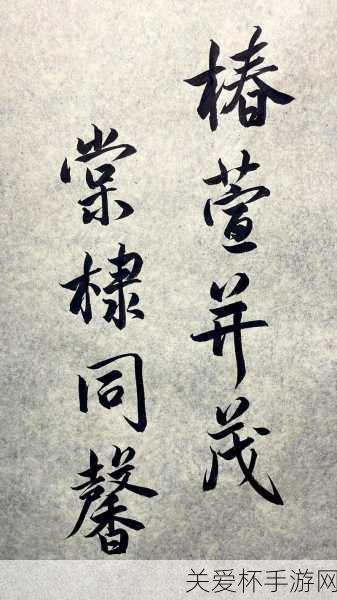 椿萱并茂
棠棣同馨
关爱杯手游网